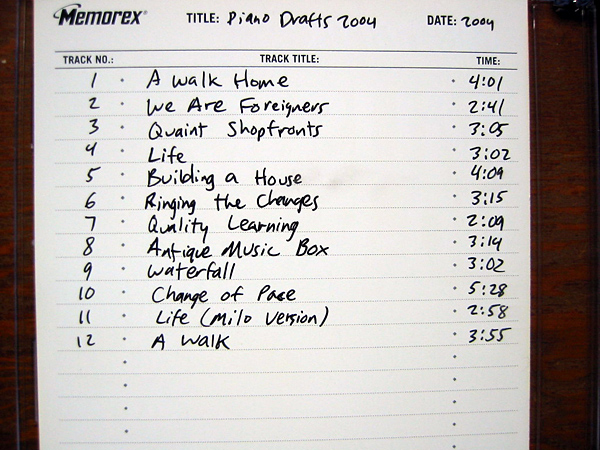 Memorex® TITLE: Piano Drafts 2004 DATE: 2004
TRACK NO.: TRACK TITLE: TIME:
1 • A Walk Home • 4:01
2 • We Are Foreigners • 2:41
3 • Quaint Shopfronts • 3:05
4 • Life • 3:02
5 • Building a House • 4:09
6 • Ringing the Changes • 3:15
7 • Quality Learning • 2:09
8 • Antique Music Box • 3:14
9 • Waterfall • 3:02
10 • Change of Pace • 5:28
11 • Life (Milo Version) • 2:58
12 • A Walk • 3:55